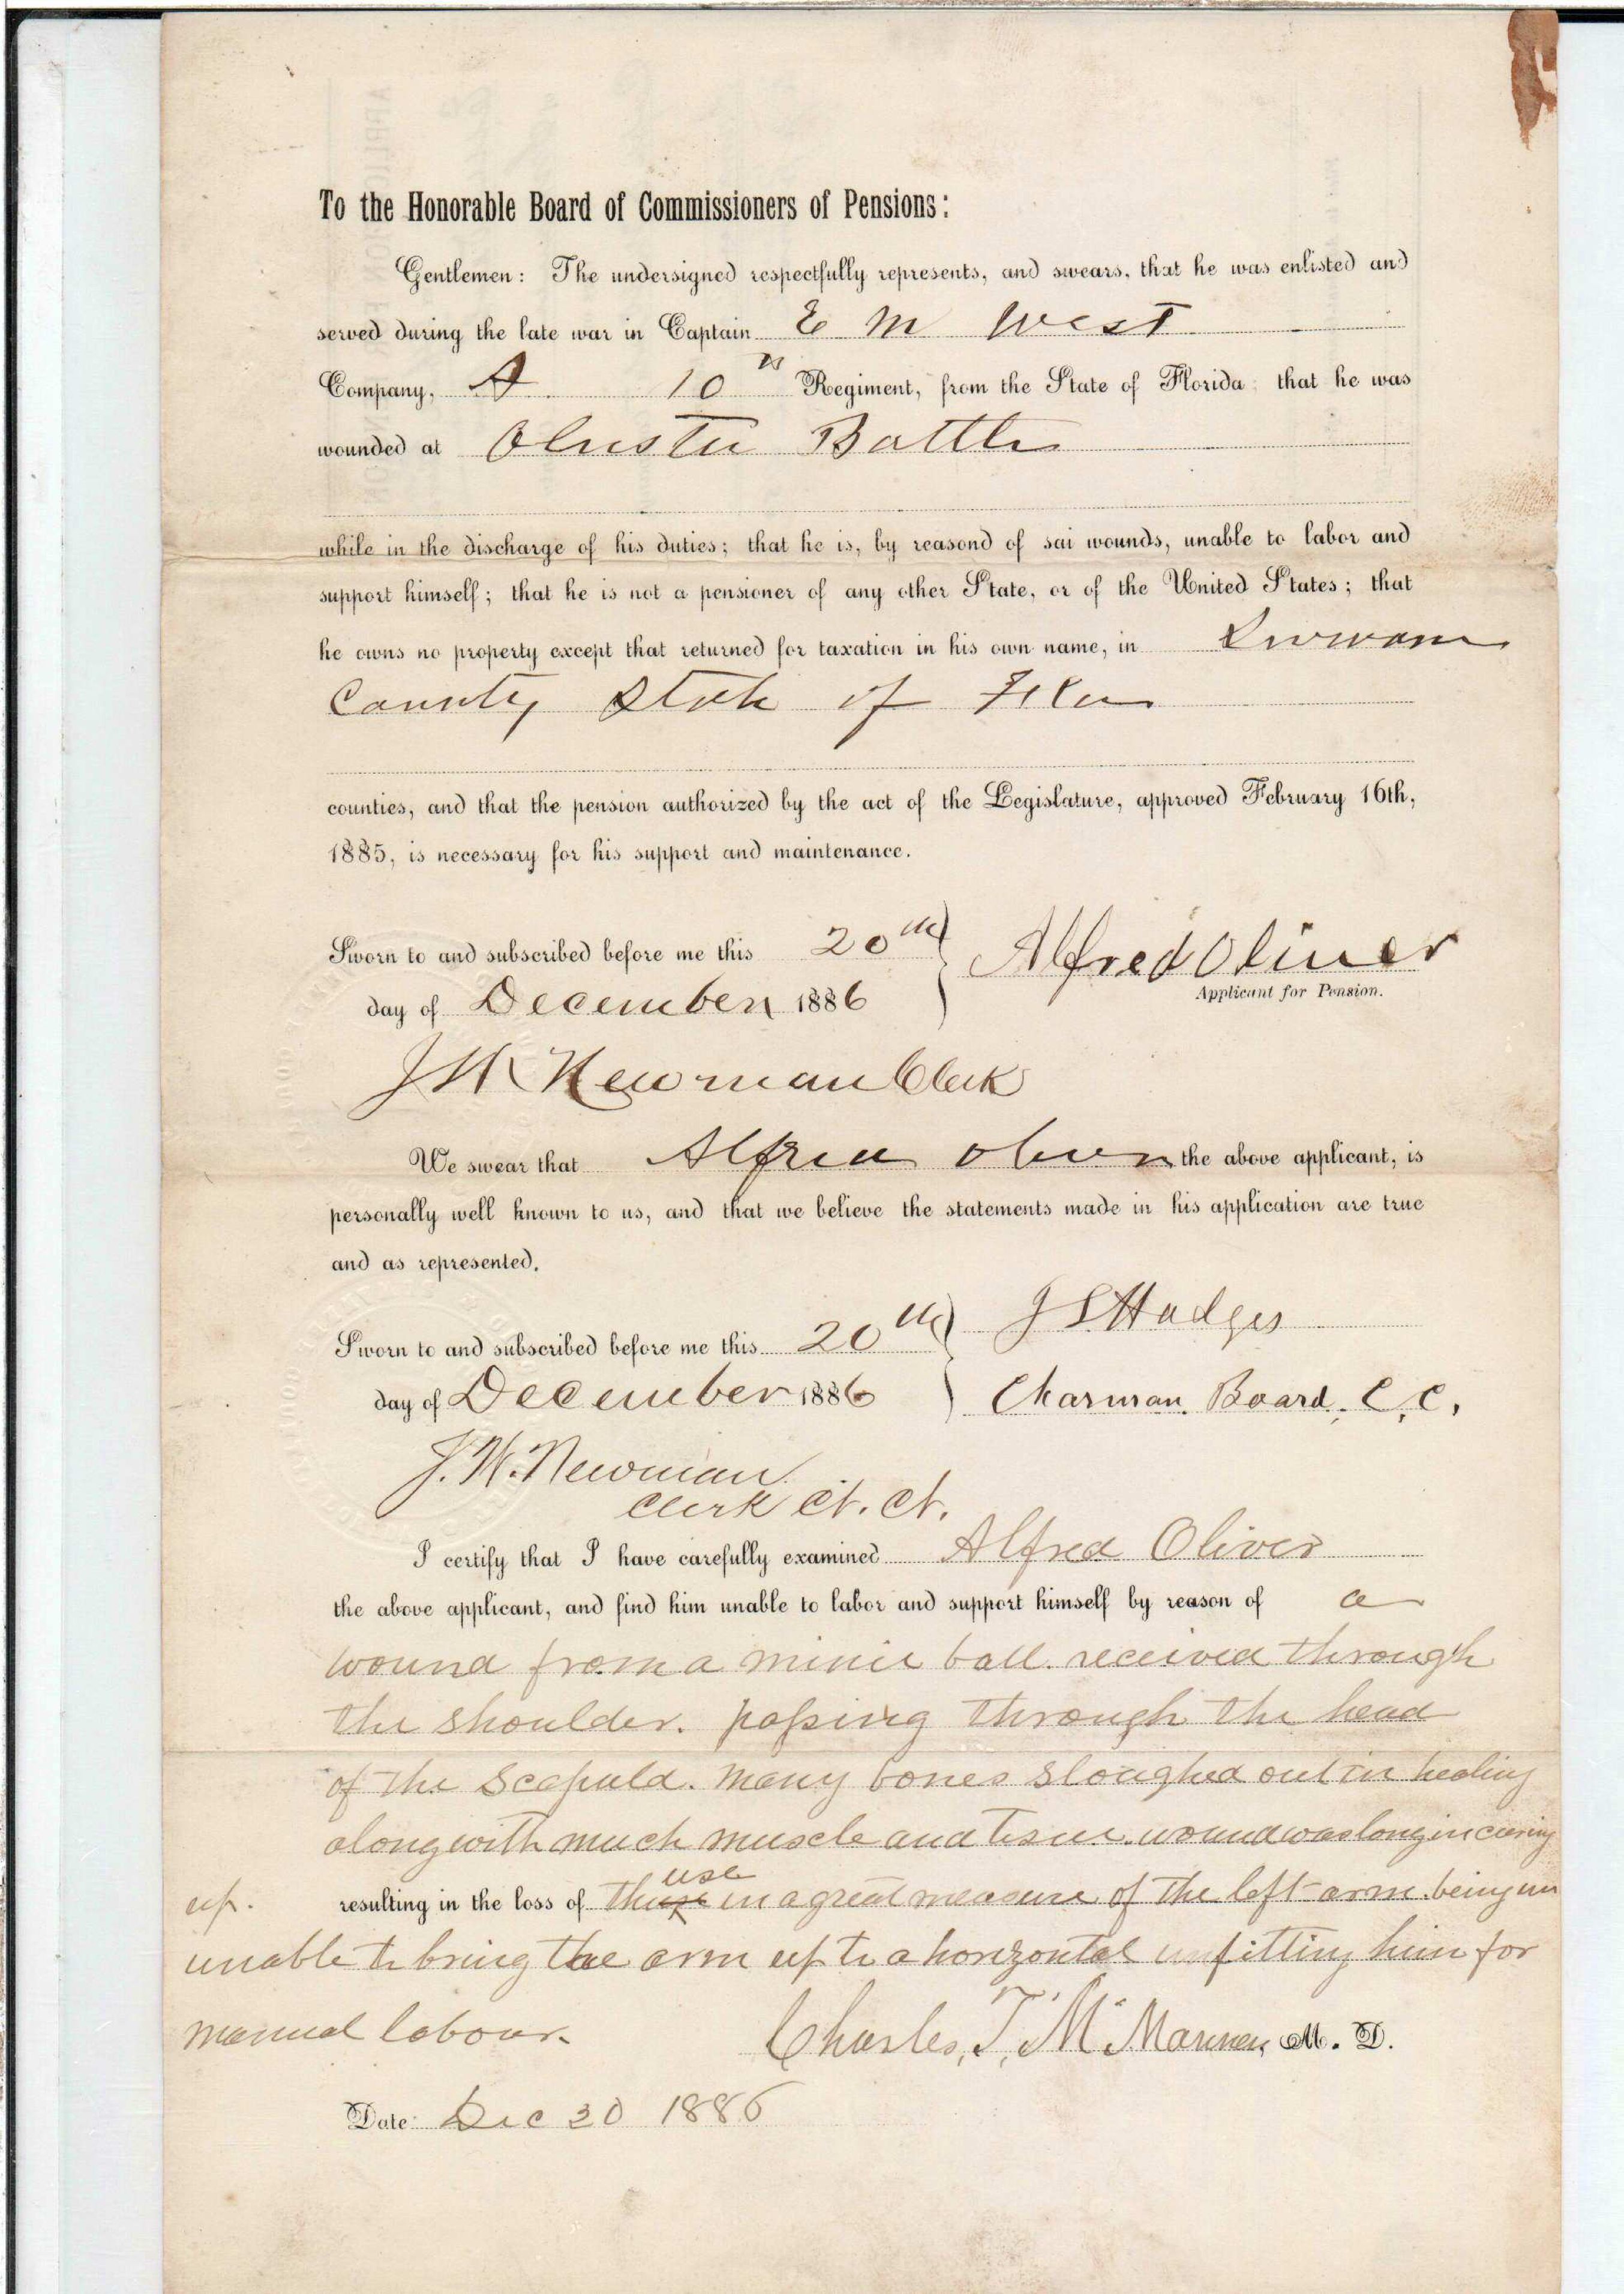 To the Honorable Board of Commissioners of Pensions:
Gentlemen: The undersigned respectfully represents, and swears, that he was enlisted and
served during the late war in Captain E M West
Company, A 10th Regiment, from the State of Florida; that he was
wounded at Olustee Battle
while in the discharge of his duties; that he is, by reasond of sai wounds, unable to labor and
support himself; that he is not a pensioner of any other State, or of the United States; that
he owns no property except that returned for taxation in his own name, in Suwanee
County State of Fla
counties, and that the pension authorized by the act of the Legislature, approved February 16th,
1885, is necessary for his support and maintenance.
Sworn to and subscribed before me this 20th Alfred Oliver
Applicant for Pension.
day of December 1886
J W Newman Clerk
We swear that Alfred Oliver the above applicant, is
personally well known to us, and that we believe the statements made in his application are true
and as represented.
Sworn to and subscribed before me this 20th J S Hodges
day of December 1886 Charman Board, C. C.
J. W. Newman
Clerk Ct. Ct.
I certify that I have carefully examined Alfred Oliver
the above applicant, and find him unable to labor and support himself by reason of a
wound from a minie ball. received through
the shoulder. passing through the head
of the Scapula. many bones sloughed out in healing
along with much muscle and tissue. wound was long in curing
up. resulting in the loss of the use in a great measure of the left arm. being un
unable to bring the arm up to a horizontal unfitting him for
manual labour.
Charles, T, Mc M. D.
Date: Dec 20 1886